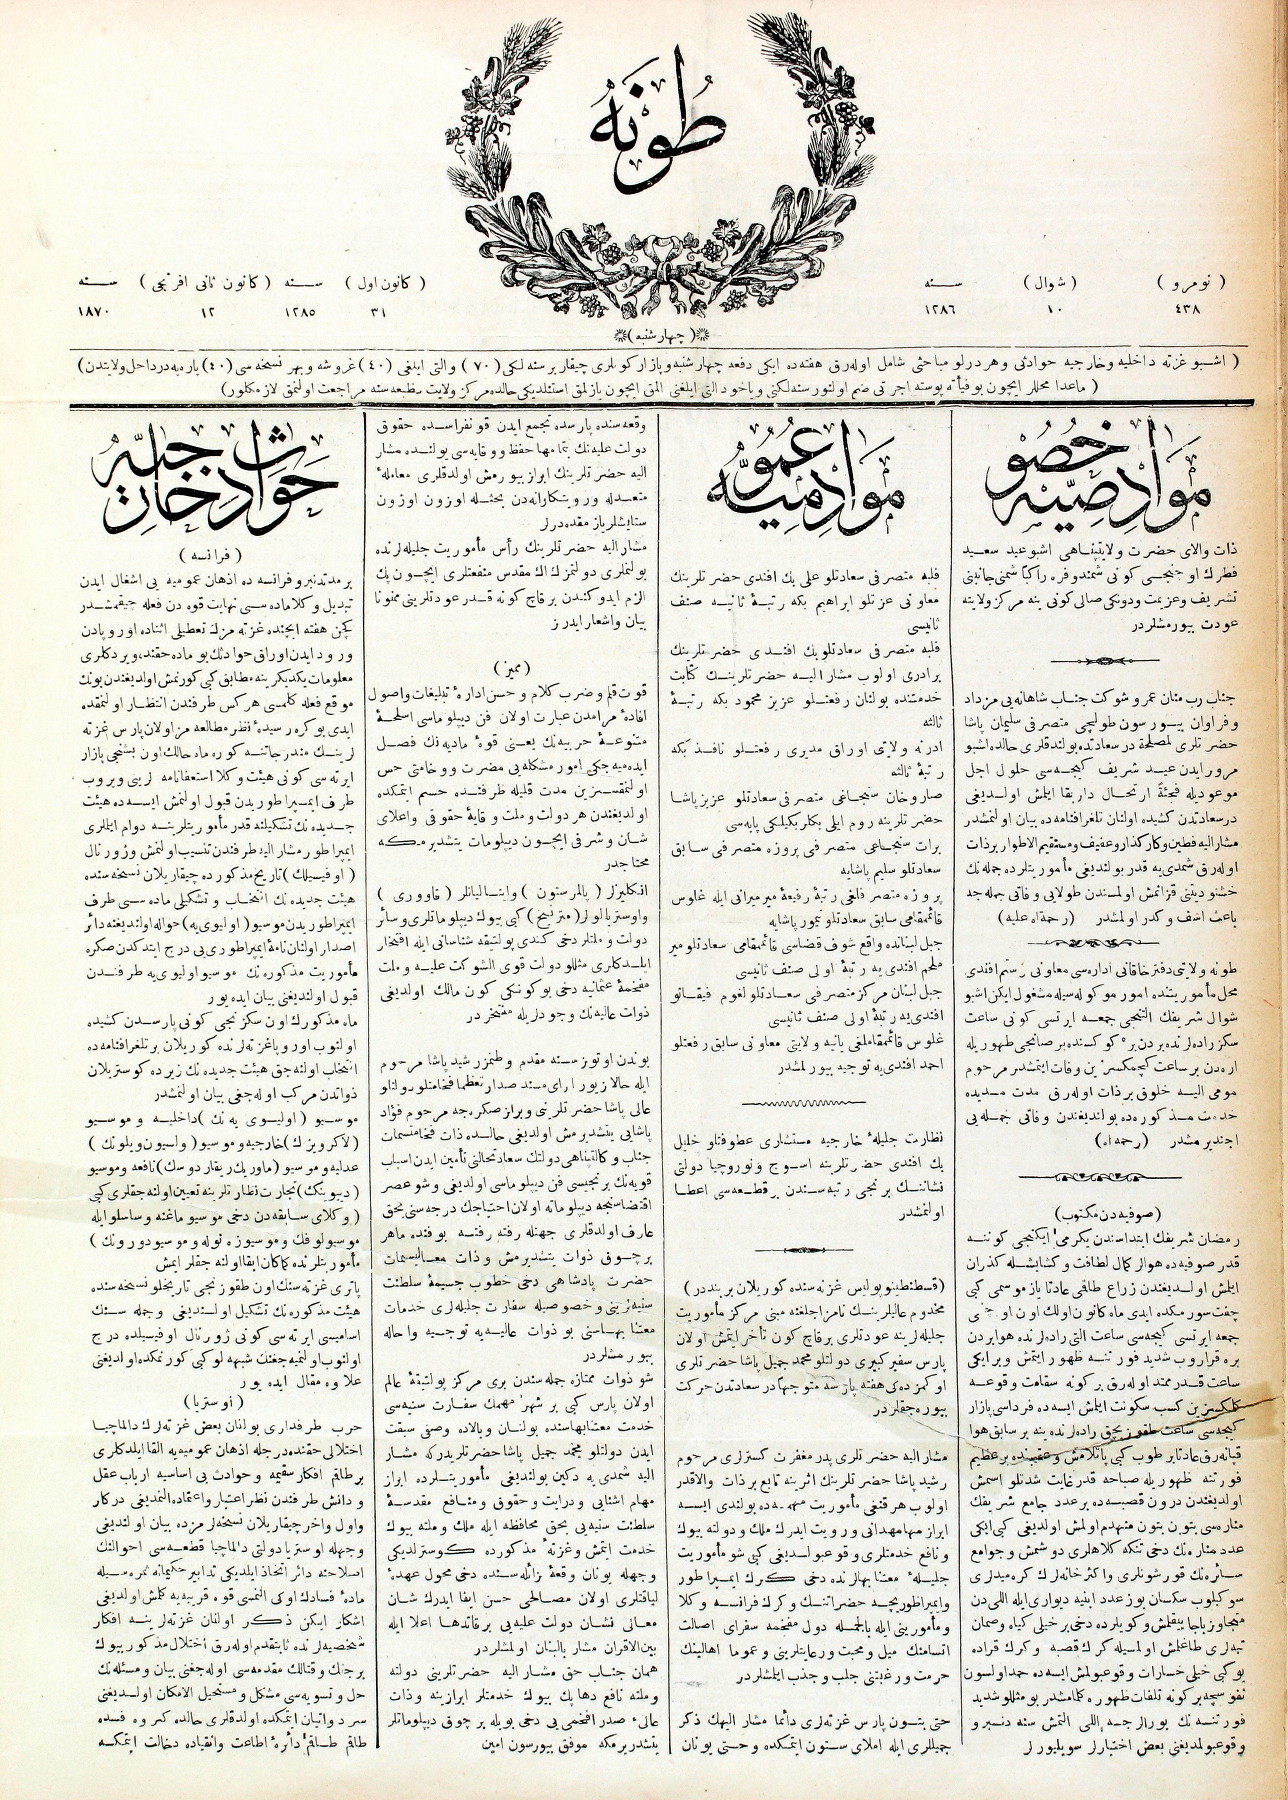 طونه
( نومرو )
٤٣٨
( شوال )
١٠
سنه
١٢٨٦
( كانون اول )
٣١
سنه
١٢٨٥
( كانون ثانى افرنجى )
١٢
سنه
١٨٧٠
( چهارشنبه )
( اشبو غزته داخليه وخارجيه حوادثى وهر درلو مباحثى شامل اوله رق هفته ده ايكى دفعه چهارشنبه و بازار كونلرى چيقار بر سنه لكى (٧٠) والتى ايلغى (٤٠) غروشه و بهر نسخه سى (٤٠) پاره يه در داخل ولايتدن)
( ماعدا محللر ايچون بوفيأته پوسته اجرتى ضم اولنور سنه لكنى وياخود التى ايلغنى المق ايچون يازلمق استنلديكى حالده مركز ولايت مطبعه سنه مراجعت اولنمق لازمكلور)
مواد خصوصيه
ذات والاى حضرت ولايتپناهى اشبو عيد سعيد
فطرك اوچنجى كونى شمندوفره راكباً شمنى جانبنى
تشريف وعزيمت ودونكى صالى كونى ينه مركز ولايته
عودت بيورمشلردر
جناب رب منان عمر و شوكت جناب شاهانه يى مزداد
وفراوان بيورسون طولچى متصرفى سليمان پاشا
حضرتلرى لمصلحة درسعادتده بولندقلرى حالده اشبو
مرور ايدن عيد شريف كيجه سى حلول اجل
موعوديله فجئة ارتحال داربقا ايلمش اولديغى
درسعادتدن كشيده اولنان تلغرافنامه ده بيان اولنمشدر
مشاراليه فطين وكاركذار وعفيف ومستقيم الاطوار برذات
اوله رق شمدى يه قدر بولنديغى مأموريتلرده جمله نك
خشنوديتنى قزانمش اولمسندن طولايى وفاتى جمله جه
باعث اسف وكدر اولمشدر (رحمةاه عليه)
طونه ولايتى دفترخاقانى اداره سى معاونى رستم افندى
محل مأموريتنده امور موكوله سيله مشغول ايكن اشبو
شوال شريفك التنجى جمعه ايرتسى كونى ساعت
سكز راده لرنده بردن بره كوكسنده بر صانجى ظهوريله
اره دن بر ساعت كچمكسزين وفات ايتمشدر مرحوم
مومى اليه خلوق برذات اوله رق مدت مديده
خدمت مذكوره ده بولنديغندن وفاتى جمله يى
اجندير مشدر (رحمه اه)
(صوفيه دن مكتوب)
رمضان شريفك ابتداسندن يكرمى ايكنجى كوننه
قدر صوفيه ده هوالر كمال لطافت وكشايشله كذران
ايلمش اولديغندن زراع طاقمى عادتا ياز موسمى كبى
چفت سورمكده ايدى ماه كانون اولك اون اوچنجى
جمعه ايرتسى كيجه سى ساعت التى راده لرنده هوا بردن
بره قراروب شديد فورتنه ظهور ايتمش وبر ايكى
ساعت قدر ممتد اوله رق بركونه سقامت وقوعه
كلمكسزين كسب سكونت ايلمش ايسه ده فرداسى بازار
كيجه سى ساعت طقوز بچق راده لرنده ينه بر سابق هوا
قپانه رق عادتا بر طوپ كبى پاتلامش وعقبنده بر عظيم
فورتنه ظهوريله صباحه قدر غايت شدتلو اسمش
اولديغندن درون قصبه ده بر عدد جامع شريفك
مناره سى بتون بتون منهدم اولمش اولديغى كبى ايكى
عدد مناره نك دخى تنكه كلاهلرى دوشمش وجوامع
سائره نك قورشونلرى واكثر خانه لرك كره ميدلرى
سوكيلوب سكسان يوز عدد ابنيه ديوارى ايله اللى دن
متجاوز باجا ييقلمش وكويلرده دخى بر خيلى كياه وصمان
تپه لرى طاغلمش اولمسيله كرك قصبه وكرك قراده
بوكبى خيلى خسارات وقوعبولمش ايسه ده حمد اولسون
نفوسجه بركونه تلفات ظهوره كلمامشدر بو مثللو شديد
فورتنه نك بورالرجه اللى التمش سنه دنبرو
وقوعبولمديغى بعض اختيارلر سويليورلر
مواد عموميه
فلبه متصرفى سعادتلو على بك افندى حضرتلرينك
معاونى عزتلو ابراهيم بكه رتبهٔ ثانيه صنف
ثانيسى
فلبه متصرفى سعادتلو بك افندى حضرتلرينك
برادرى اولوب مشار اليه حضرتلرينك كتابت
خدمتنده بولنان رفعتلو عزيز محمود بكه رتبهٔ
ثالثه
ادرنه ولايتى اوراق مديرى رفعتلو نافذ بكه
رتبهٔ ثالثه
صاروخان سنجاغى متصرفى سعادتلو عزيز پاشا
حضرتلرينه روم ايلى بكلربكيلكى پايه سى
برات سنجاغى متصرفى پروزه متصرفى سابق
سعادتلو سليم پاشايه
پروزه متصرفلغى رتبهٔ رفيعهٔ ميرميرانى ايله غلوس
قائممقامى سابق سعادتلو تيمور پاشايه
جبل لبنانده واقع شوف قضاسى قائممقامى سعادتلو مير
ملحم افندى يه رتبهٔ اولى صنف ثانيسى
جبل لبنان مركز متصرفى سعادتلو لغوم فيقاتو
افندى يه رتبهٔ اولى صنف ثانيسى
غلوس قائممقاملغى يانيه ولايتى معاونى سابق رفعتلو
احمد افندى يه توجيه بيورلمشدر
نظارت جليلهٔ خارجيه مستشارى عطوفتلو خليل
بك افندى حضرتلرينه اسوج ونوروچيا دولتى
نشاننك برنجى رتبه سندن برقطعه سى اعطا
اولنمشدر
(قسطنطينوپوليس غزته سنده كوريلان بر بنددر)
مخدوم عاليلرينك نامزاجلغنه مبنى مركز مأموريت
جليله لرينه عودتلرى برقاچ كون تأخر ايتمش اولان
پارس سفير كبيرى دولتلو محمد جميل پاشا حضرتلرى
اوكمزده كى هفته پارسه متوجها درسعادتدن حركت
بيوره جقلردر
مشار اليه حضرتلرى پدر مغفرت كسترلرى مرحوم
رشيد پاشا حضرتلرينك اثرينه تابع برذات والاقدر
اولوب هر قنغى مأموريت مهمه ده بولندى ايسه
ابراز مهامهدانى ورويت ايدرك ملك ودولته بيوك
ونافع خدمتلرى وقوعبولديغى كبى شو مأموريت
جليلهٔ معتنابهالرنده دخى كرك ايمپراطور
وايمپراطوريچه حضراتنك وكرك فرانسه وكلا
ومأمورينى ايله بالجمله دول مفخمه سفراى اصالت
اتسامنك ميل ومحبت ورعايتلرينى وعموما اهالينك
حرمت ورغبتنى جلب وجذب ايلمشلردر
حتى بتون پارس غزته لرى دائما مشار اليهك ذكر
جميللرى ايله املاى ستون ايتمكده وحتى يونان
وقعه سنده پارسده تجمع ايدن قونفرانسده حقوق
دولت عليه نك بتمامها حفظ ووقايه سى يولنده مشار
اليه حضرتلرينك ابراز بيورمش اولدقلرى معاملهٔ
متعدله ورويتكارانه دن بحثله اوزون اوزون
ستايشلر يازمقده درلر
مشار اليه حضرتلرينك رأس مأموريت جليله لرنده
بولنملرى دولتمزك اك مقدس منفعتلرى ايچون پك
الزم ايدوكندن برقاچ كونه قدر عودتلرينى ممنونا
بيان واشعار ايدرز
(مميز)
قوت قلم وضرب كلام وحسن ادارهٔ تبليغات واصول
افادهٔ مرامدن عبارت اولان فن ديپلوماسى اسلحهٔ
متنوعهٔ حربيه نك يعنى قوهٔ ماديه نك فصل
ايده ميه جكى امور مشكله يى مضرت ووخامتى حس
اولنمقسزين مدت قليله ظرفنده حسم ايتمكده
اولديغندن هر دولت وملت وقايهٔ حقوقى واعلاى
شان وشرفى ايچون ديپلومات يتشديرمكه
محتاجدر
انكليزلر (پالمرستون) وايتاليانلر (قاوورى)
واوستريالولر (مترنيخ) كبى بيوك ديپلوماتلرى وسائر
دولت وملتلر دخى كندى پولتيقه شناسانى ايله افتخار
ايلدكلرى مثللو دولت قوى الشوكت عليه وملت
مفخمهٔ عثمانيه دخى بوكونكى كون مالك اولديغى
ذوات عاليه نك وجودلريله مفتخردر
بوندن اوتوز سنه مقدم وطنمز رشيد پاشا مرحوم
ايله حالا زيور اراى مسند صدارتعظما فخامتلو دولتلو
عالى پاشا حضرتلرينى وبراز صكره جه مرحوم فؤاد
پاشايى يتشديرمش اولديغى حالده ذات فخامتسمات
جناب وكالتپناهى دولتك سعادتحالنى تأمين ايدن اسباب
قويه نك برنجيسى فن ديپلوماسى اولديغى وشو عصر
اقتضاسنجه ديپلوماته اولان احتياجك درجه سنى بحق
عارف اولدقلرى جهتله رفته رفته بو فنده ماهر
برچوق ذوات يتشديرمش وذات معاليسمات
حضرت پادشاهى دخى خطوب جسيمهٔ سلطنت
سنيه لرينى وخصوصيله سفارت جليله لرى خدمات
معتنابهاسنى بو ذوات عاليه يه توجيه واحاله
بيورمشلردر
شو ذوات ممتازه جمله سندن برى مركز پولتيقهٔ عالم
اولان پارس كبى بر شهر مهمك سفارت سنيه سى
خدمت معتنابهاسنده بولنان وبالاده وصفى سبقت
ايدن دولتلو محمد جميل پاشا حضرتلريدركه مشار
اليه شمدى يه دكين بولنديغى مأموريتلرده ابراز
مهام اشنايى ودرايت وحقوق ومنافع مقدسهٔ
سلطنت سنيه يى بحق محافظه ايله ملك وملته بيوك
خدمت ايتمش وغزتهٔ مذكورده كوسترلديكى
وجهله يونان وقعهٔ زائله سنده دخى محول عهدهٔ
لياقتلرى اولان مصالحى حسن ايفا ايدرك شان
معالى نشان دولت عليه يى برقاتدها اعلا ايله
بين الاقران مشار بالبنان اولمشلردر
همان جناب حق مشار اليه حضرتلرينى دولته
وملته نافع دها پك بيوك خدمتلر ابرازينه وذات
عالىٔ صدر افخمى يى دخى بويله برچوق ديپلوماتلر
يتشديرمكه موفق بيورسون امين
حوادث خارجيه
( فرانسه )
بر مدتدنبرو فرانسه ده اذهان عموميه يى اشغال ايدن
تبديل وكلا ماده سى نهايت قوه دن فعله چيقمشدر
كچن هفته ايچنده غزته مزك تعطيلى اثناده اوروپادن
ورود ايدن اوراق حوادثك بو ماده حقنده ويردكلرى
معلومات يكديكرينه مطابق كبى كورنمش اولديغندن بونك
موقع فعله كلمسى هركس طرفندن انتظار اولنمقده
ايدى بوكره رسيدهٔ نظر مطالعه مز اولان پارس غزته
لرينك مندرجاتنه كوره ماه حالك اون بشنجى بازار
ايرته سى كونى هيئت وكلا استعفانامه لرينى ويروب
طرف ايمپراطوريدن قبول اولنمش ايسه ده هيئت
جديده نك تشكيلنه قدر مأموريتلرينه دوام ايتملرى
ايمپراطور مشار اليه طرفندن تنسيب اولنمش وژورنال
( اوفيسيلك ) تاريخ مذكورده چيقاريلان نسخه سنده
هيئت جديده نك انتخاب وتشكيلى ماده سى طرف
ايمپراطوريدن موسيو ( اوليوى يه ) حواله اولنديغنه دائر
اصدار اولنان نامهٔ ايمپراطورى يى درج ايتدكدن صكره
مأموريت مذكوره نك موسيو اوليوى يه طرفندن
قبول اولنديغنى بيان ايده يور
ماه مذكورك اون سكزنجى كونى پارسدن كشيده
اولنوب اوروپا غزته لرنده كوريلان برتلغرافنامه ده
انتخاب اولنه جق هيئت جديده نك زيرده كوستريلان
ذواتدن مركب اوله جغى بيان اولنمشدر
موسيو ( اوليوى يه نك ) داخليه وموسيو
( لاكرويزك ) خارجيه وموسيو ( واسيون ويلونك )
عدليه وموسيو ( ماوريك ريقاردوسك ) نافعه وموسيو
( ديوبنك ) تجارت نظارتلرينه تعيين اولنه جقلرى كبى
( وكلاى سابقه دن دخى موسيو ماغنه وساسلو ايله
موسيولوفك وموسيوزه نوله وموسيودورونك )
مأموريتلرنده كماكان ابقا اولنه جقلر ايمش
پاترى غزته سنك اون طقوزنجى تاريخلو نسخه سنده
هيئت مذكوره نك تشكيل اولنديغى وجمله سنك
اساميسى ايرته سى كونى ژورنال اوفيسيلده درج
اولنوب اولنميه جغنك شبهه لوكبى كورنمكده اولديغنى
علاوهٔ مقال ايده يور
( اوستريا )
حرب طرفدارى بولنان بعض غزته لرك دالماچيا
اختلالى حقنده درجله اذهان عموميه يه القا ايلدكلرى
برطاقم افكار سقيمه وحوادث بى اساسيه ارباب عقل
ودانش طرفندن نظر اعتبار واعتماده النمديغى دركار
واول واخر چيقاريلان نسخه لرمزده بيان اولنديغى
وجهله اوستريا دولتى دالماچيا قطعه سى احوالنك
اصلاحنه دائر اتخاذ ايلديكى تدابير حكيمانه ثمره سيله
مادهٔ فسادك اوكى النمسى قوهٔ قريبه يه كلمش اولديغى
اشكار ايكن ذكر اولنان غزته لرينه افكار
شخصيه لرنده ثابتقدم اوله رق اختلال مذكور بيوك
برجنك وقتالك مقدمه سى اوله جغنى بيان ومسئله نك
حل وتسويه سى مشكل ومستحيل الامكان اولديغنى
سرد واتيان ايتمكده اولدقلرى حالده كروه فسده
طاقم طاقم دائرهٔ اطاعت وانقياده دخالت ايتمكده